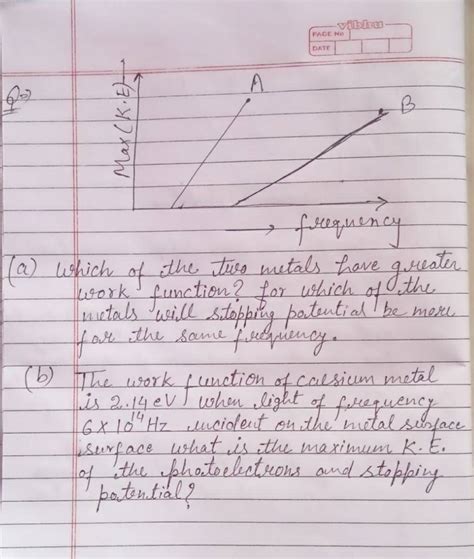 vibhu
PAGE NO
DATE
Q→
A
B
Max (K.E)
→ frequency
(a) which of the two metals have greater
work function? for which of the
metals will stopping potential be more
for the same frequency.
(b) The work function of caesium metal
is 2.14 eV when light of frequency
6 X 10¹⁴ Hz incident on the metal surface
surface what is the maximum K.E.
of the photoelectrons and stopping
potential?